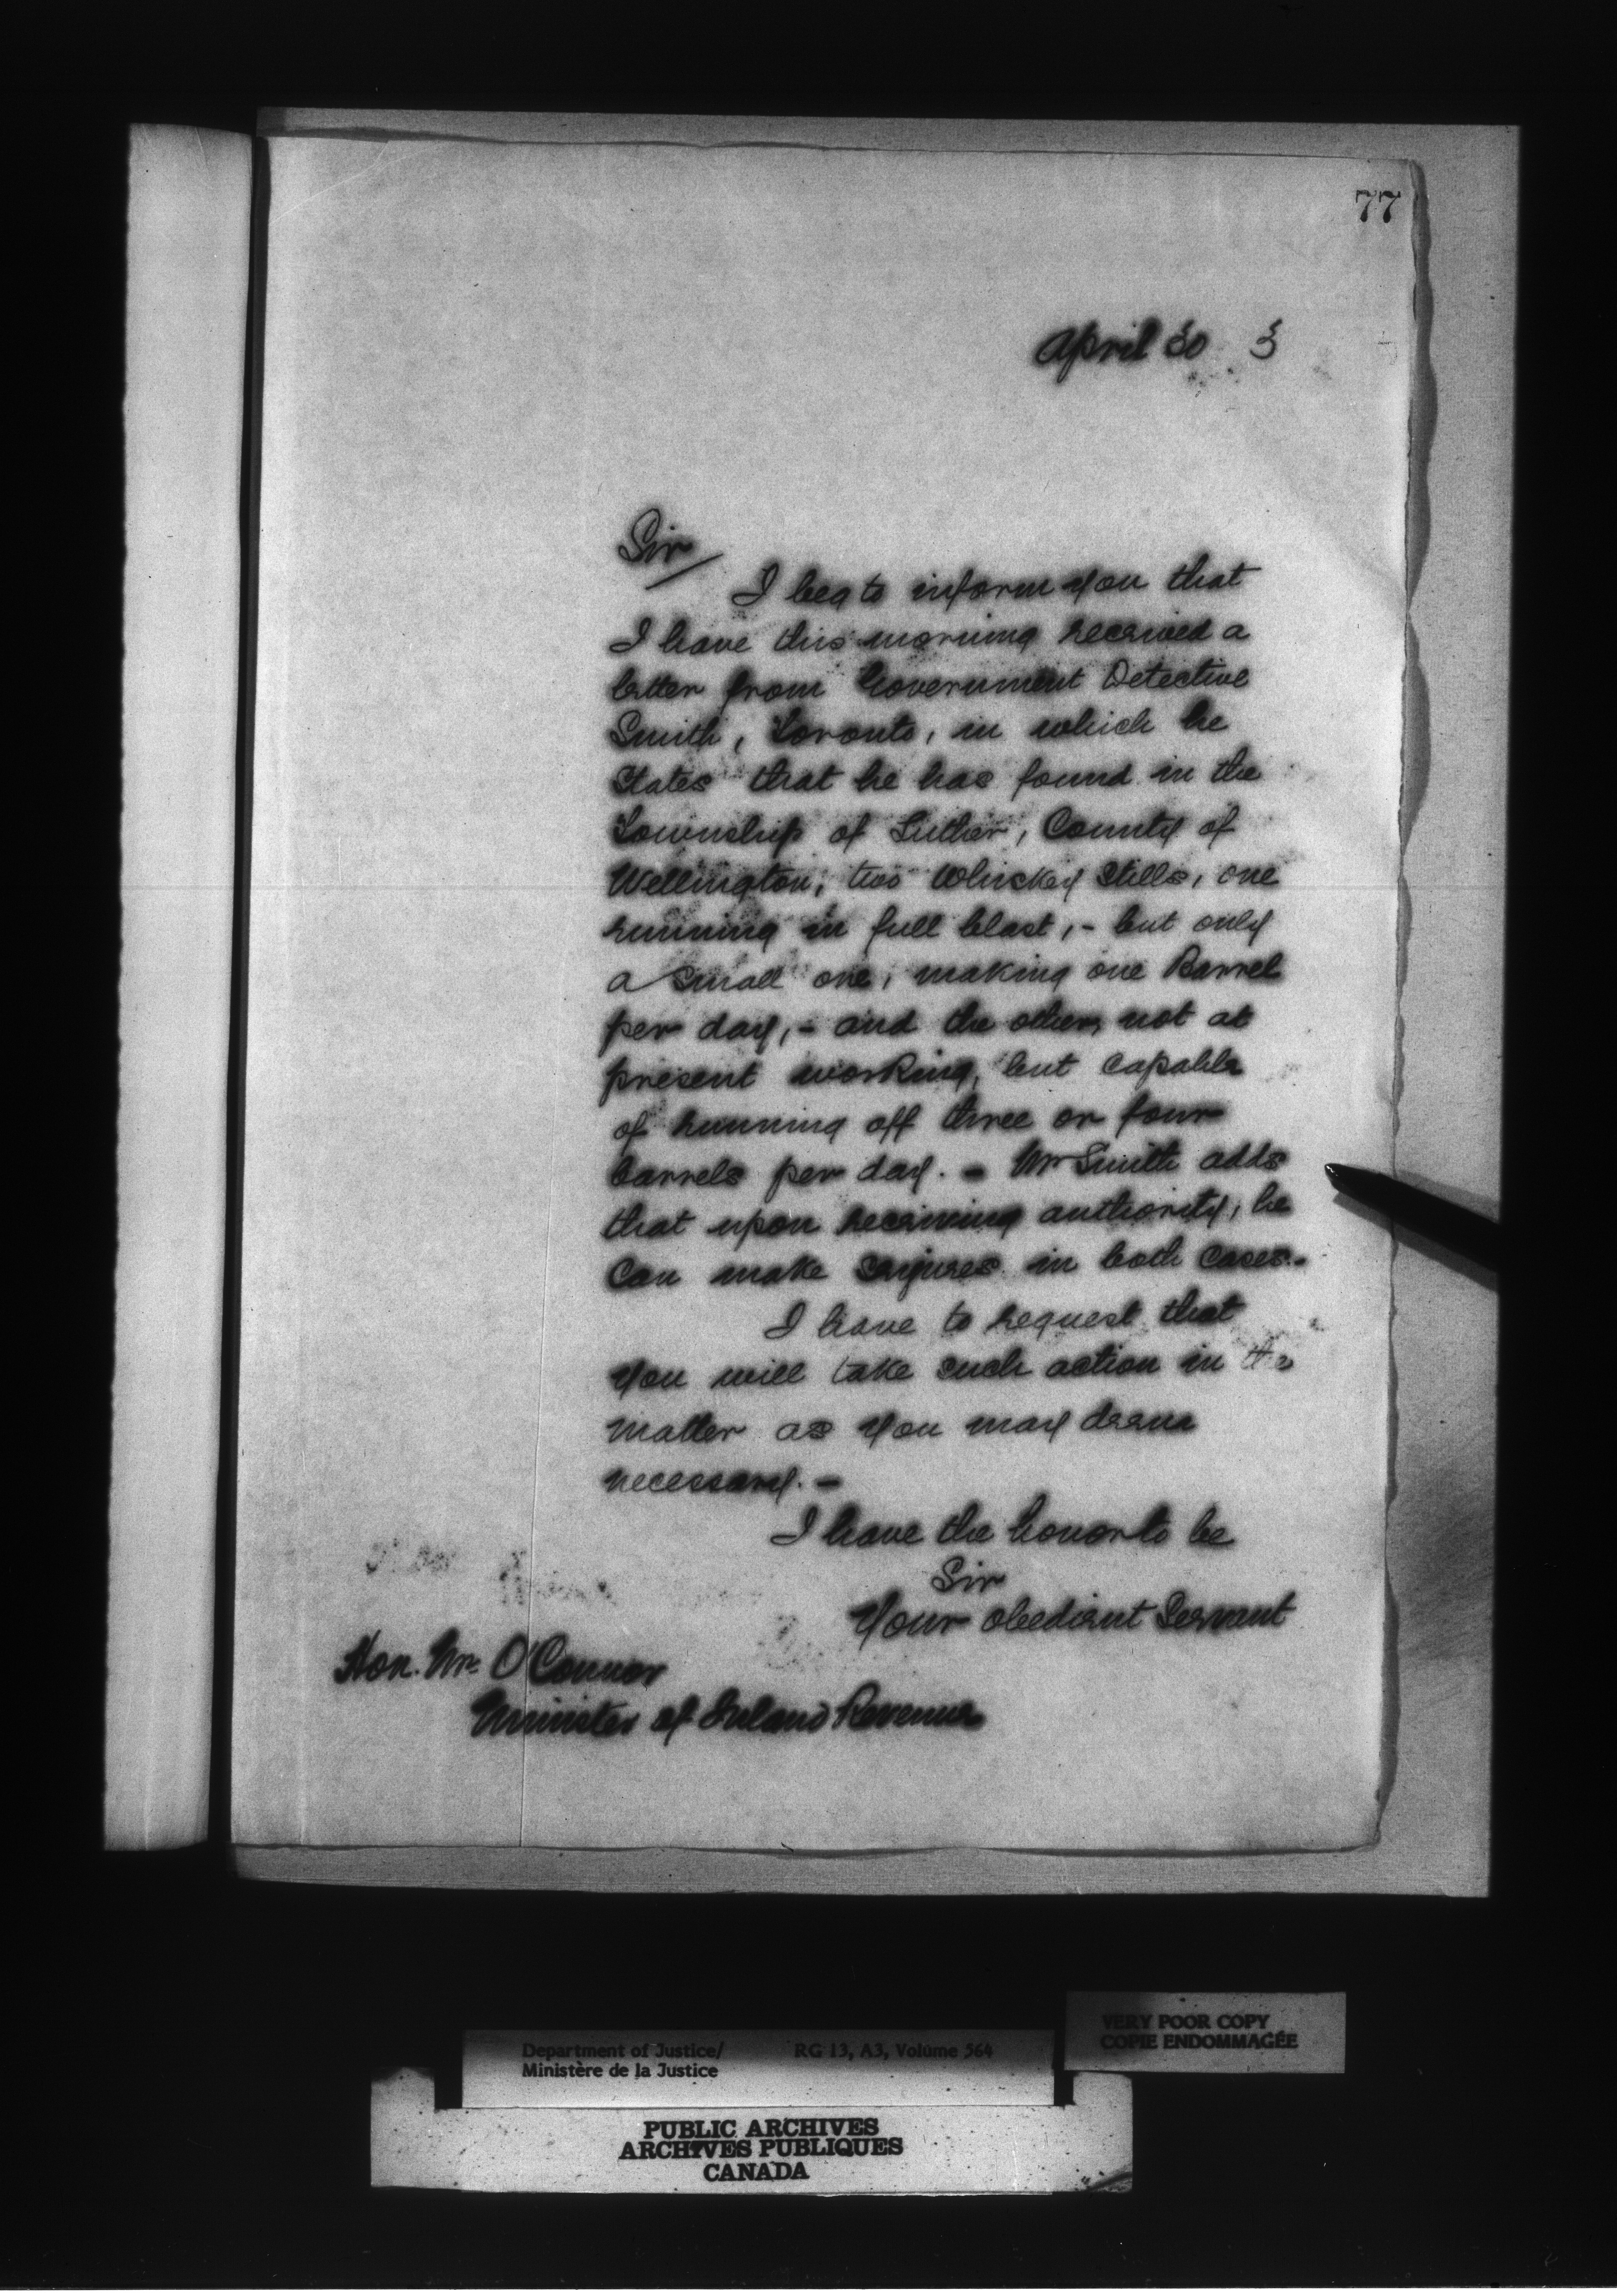 77
April 30 3
Sir
I beg to inform you that
I have this morning received a
letter from Government Detective
Smith, Toronto, in which he
States that he has found in the
Township of Luther, County of
Wellington, two Whiskey Stills, one
running in full blast, - but only
a small one, making one Barrel
per day, - and the other, not at
present working, but capable
of running off three or four
barrels per day. - Mr Smith adds
that upon receiving authority, he
Can make seizures in both Cases. -
I have to request that
you will take such action in the
matter as you may deem
necessary. -
I have the honor to be
Sir
Your obedient Servant
Hon. Mr. O'Connor
Minister of Inland Revenue
VERY POOR COPY
COPIE ENDOMMAGÉE
Department of Justice/ RG 13, A3, Volume 564
Ministère de la Justice
PUBLIC ARCHIVES
ARCHIVES PUBLIQUES
CANADA